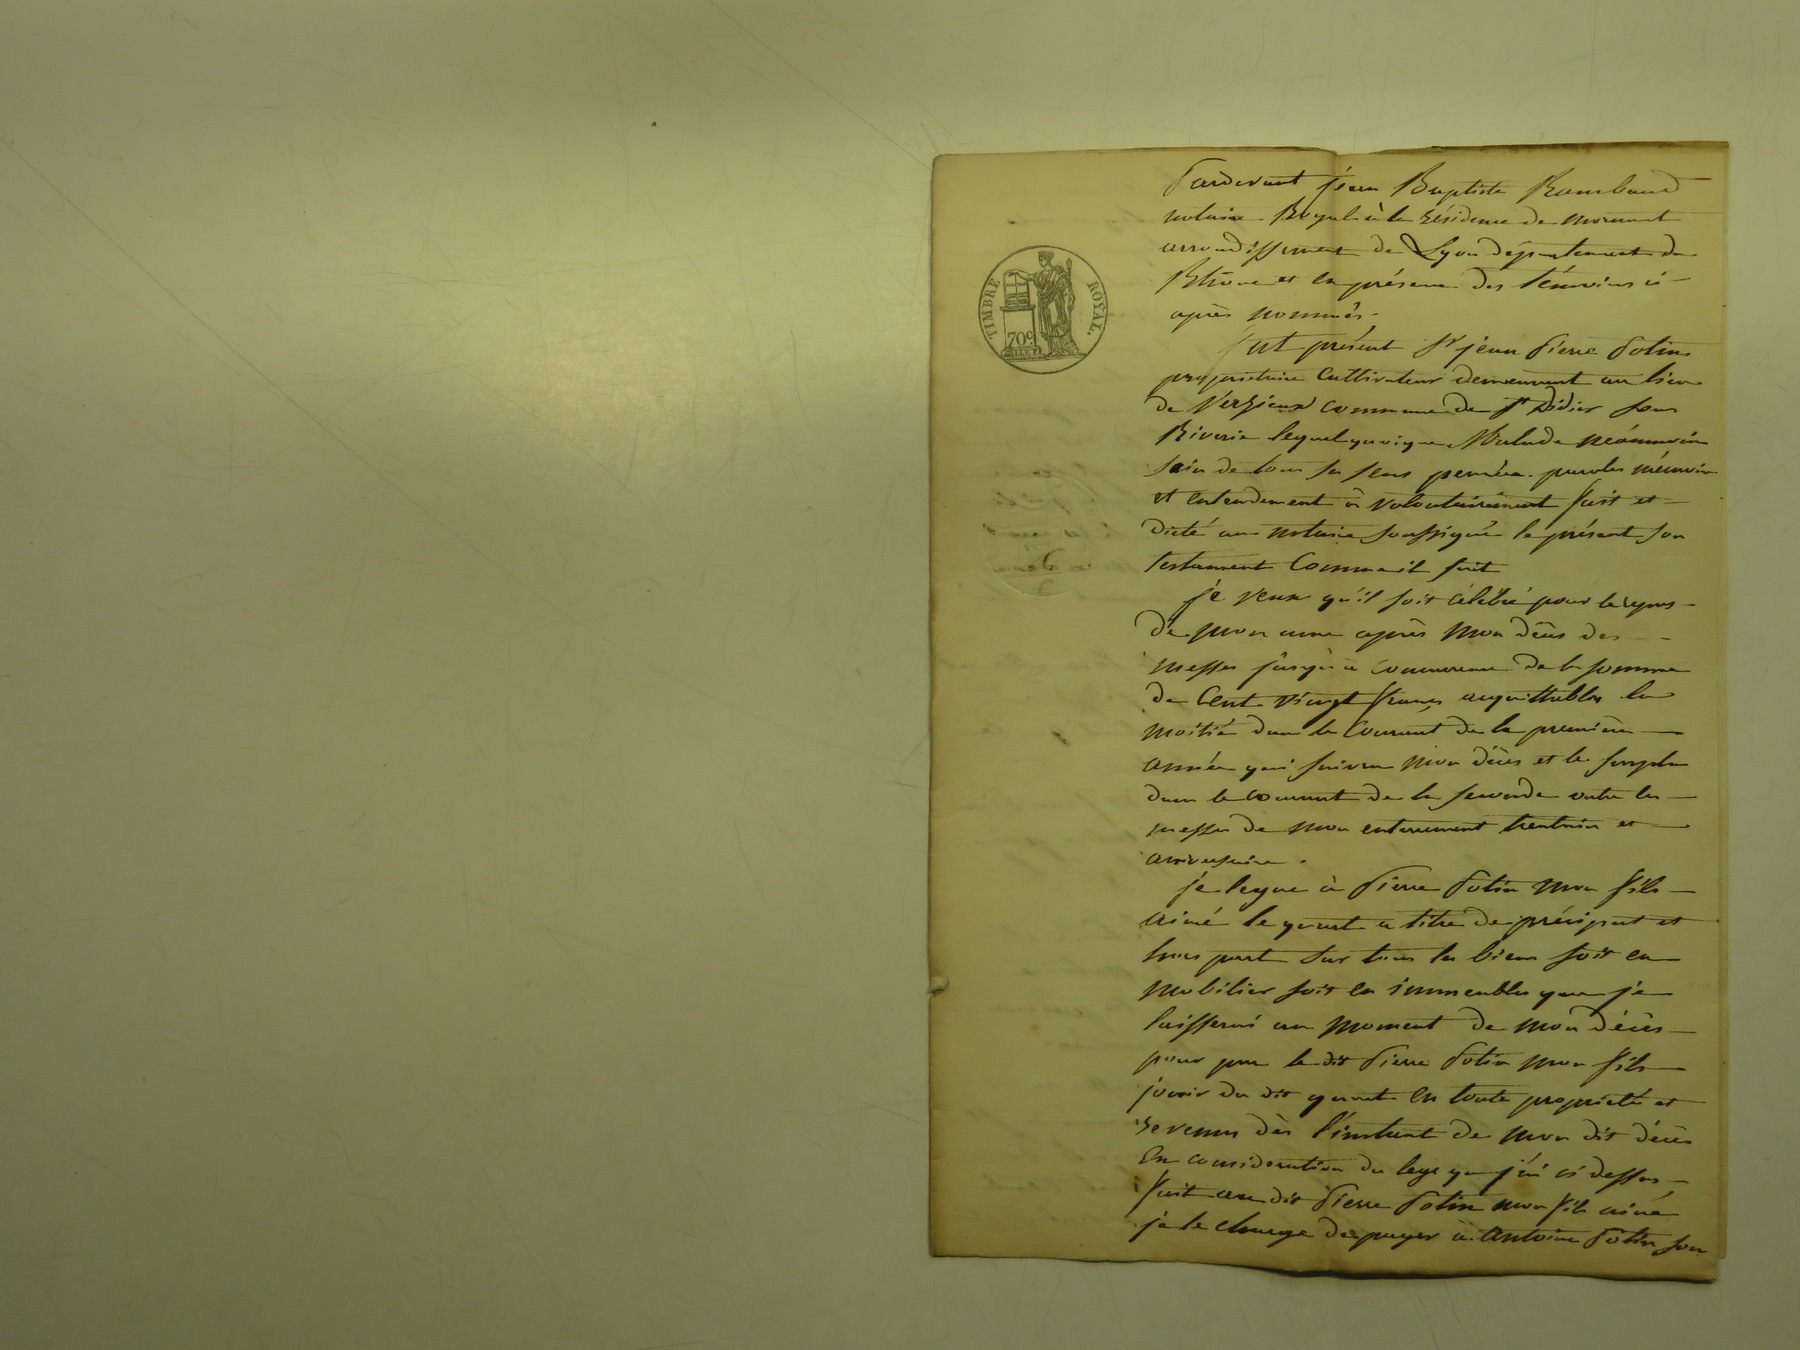 TIMBRE ROYAL.
70c
Pardevant jean Baptiste Rambaud
notaire Royal à la résidence de mornant
arrondissement de Lyon département du
Rhône et en présence des témoins ci
après nommés.
fut présent Sr jean Pierre Potin
propriétaire Cultivateur demeurant au lieu
de Verzieux commune de St Didier sous
Riverie lequel quoique Malade néanmoins
sain de tous ses sens pensées paroles mémoire
et entendement à volontairement fait et
dicté au notaire soussigné le présent son
testament Comme il suit
je veux qu'il soit célébré pour le repos
de mon ame après mon décès des
messes jusqu'à concurrence de la somme
de Cent vingt francs acquittables la
moitié dans le Courant de la première
année qui suivra mon décès et le surplus
dans le courant de la seconde outre les
messes de mon enterrement trentain et
anniversaire.
je legue à Pierre Potin mon fils
ainé le quart a titre de préciput et
hors part sur tous les biens soit en
mobilier soit en immeubles que je
laisserai au moment de mon décès
pour par le dit Pierre Potin mon fils
jouir du dit quart en toute propriété et
revenus dès l'instant de mon dit décès
En considération du legs que j'ai ci dessus
fait au dit Pierre Potin mon fils ainé
je le charge de payer à Antoine Potin son